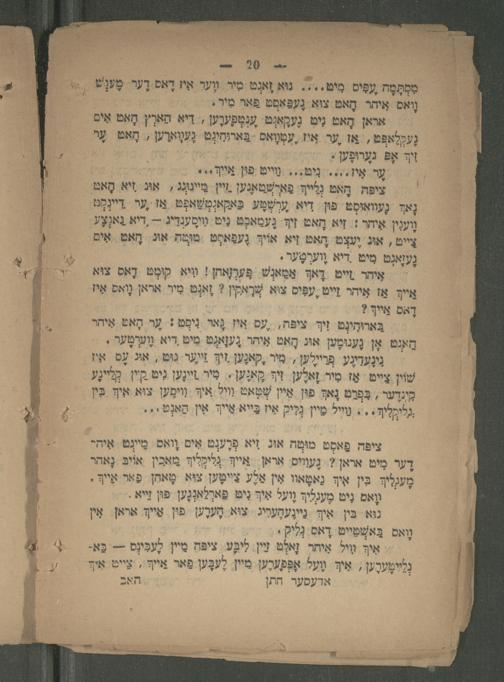 — 20 —
מסתּמה עפּיס מיט.... נוא זאגט מיר ווער איז דאס דער מענש
וואס איהר האט צוא געפאסט פאר מיר.
אראן האט ניט געקאנט ענטפערען, דיא הארץ האט אים
געקלאפט, אז ער איז עטוואס בארוהיגט געווארען, האט ער
זיך אפ גערופען.
ער איז.... ניט... ווייט פון אייך...
ציפה האט גלייך פארשטאנען זיין מיינונג, אונ זיא האט
נאך געוואוסט פון דיא ערשטע באקאנטשאפט אז ער דיינקט
וועגין איהר: זיא האט זיך געמאכט ניט וויסענדיג — דיא גאנצע
צייט, אונ יעצט האט זיא אויך געפאסט מוטה אונ האט אים
געזאגט מיט דיא ווערטער.
איהר זייט דאך אמאנש פערזאהן! וויא קומט דאס צוא
אייך אז איהר זייט עפיס צוא שראקין? זאגט מיר אראן וואס איז
דאס אייך?
בארוהיגט זיך ציפה, עס איז גאר ניסט: ער האט איהר
האנט אן גענומען אונ האט איהר געזאגט מיט דיא ווערטער.
גינעדיגע פרייליין, מיר קאנען זיך זייער גוט, אונ עס איז
שוין צייט אז מיר זאלען זיך קאנען. מיר זיינען ניט קיין קליינע
קינדער, בפרט נאך פון איין שטאט וויל איך וויסען צוא איך בין
גליקליך... ווייל מיין גליק איז בייא אייך אין האנט...
ציפה פאסט מוטה אונ זיא פרעגט אים וואס מיינט איה־
דער מיט אראן? געוויס אראן אייך גליקליך מאכין אויב נאהר
מעגליך בין איך גאטאוו אין אלע צייטען צוא טאהן פאר אייך.
וואס ניט מעגליך וועל איך ניט פארלאנגען פון זייא.
נוא בין איך נייגעהעריג צוא הערען פון אייך אראן אין
וואס באשטייט דאס גליק.
איך וויל איהר זאלט זיין ליבע ציפה מיין לעבינס — בא־
גלייטערען, איך וועל אפפערען מיין לעבען פאר אייך, צייט איך
אדעסער חתן האב